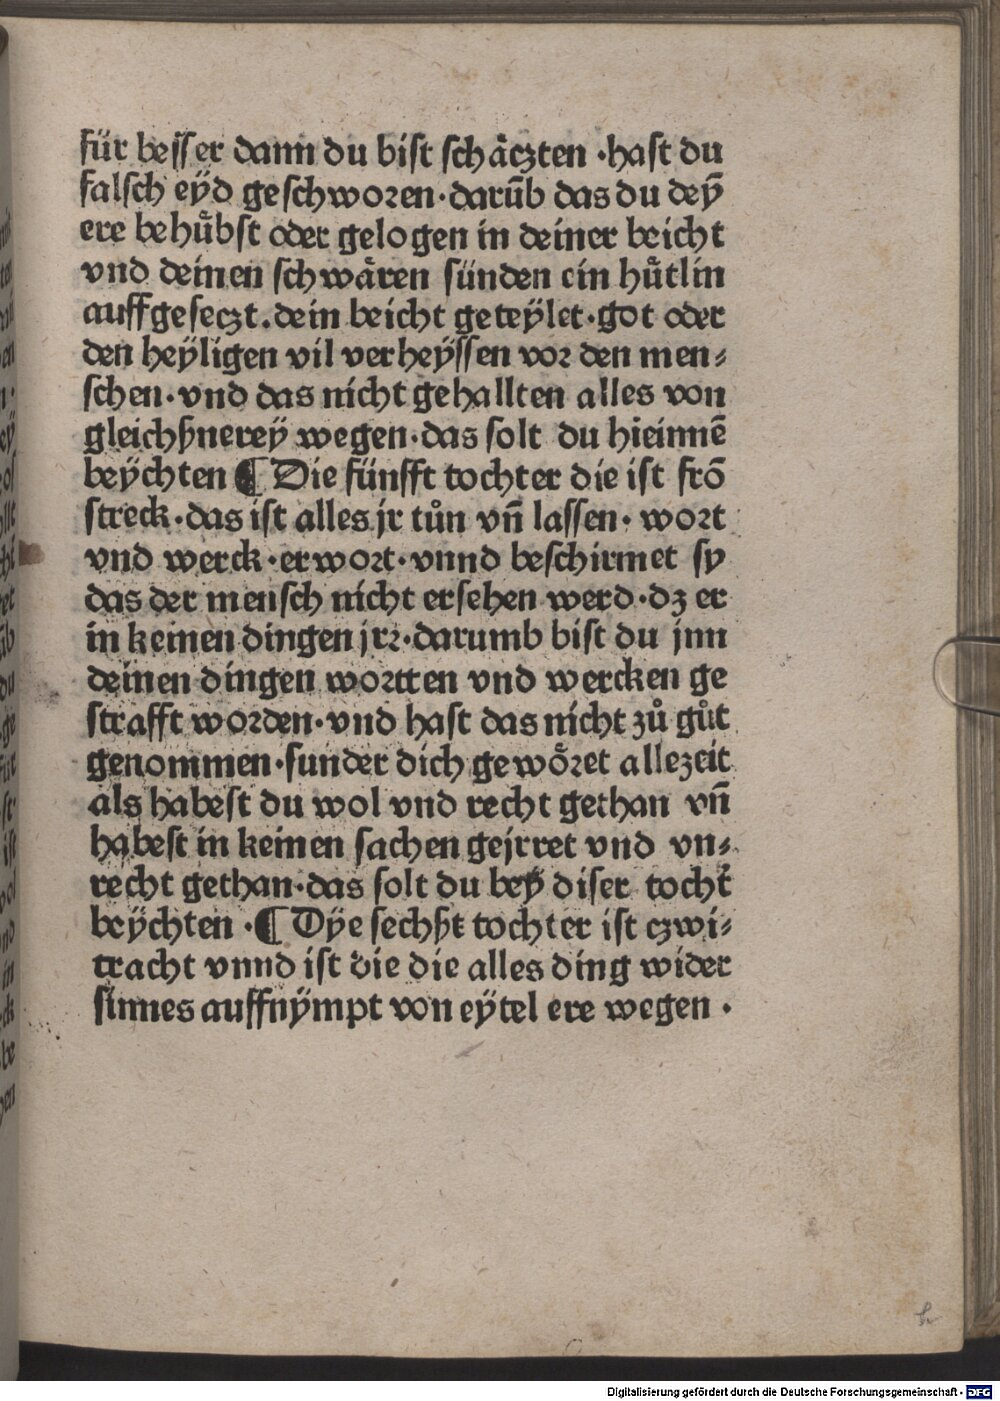 für besser dann du bist schäczten ·hast du
falsch eÿd geschworen·darūb das du deȳ
ere behuͤbst oder gelogen in deiner beicht
vnd deinen schwären sünden ein huͤtlin
auffgeseczt.dein beicht geteÿlet·got oder
den heÿligen vil verheÿssen vor den men⸗
schen·vnd das nicht gehallten alles von
gleichßnereÿ wegen·das solt du hieinnē
beÿchten ¶ Die fünfft tochter die ist frō
streck·das ist alles jr tůn vn̄ lassen· wort
vnd werck·erwort·vnnd beschirmet sy
das der mensch nicht ersehen werd·dz er
in keinen dingen jrr·darumb bist du jnn
deinen dingen wortten vnd wercken ge
strafft worden·vnd hast das nicht zů gůt
genommen·sunder dich gewoͤret allezeit
als habest du wol vnd recht gethan vn̄
habest in keinen sachen gejrret vnd vn⸗
recht gethan·das solt du beÿ diser tocht̛
beÿchten ·¶ Dÿe sechßt tochter ist czwi⸗
tracht vnnd ist die die alles ding wider
sinnes auffnÿmpt von eÿtel ere wegen ·
Digitalisierung gefördert durch die Deutsche Forschungsgemeinschaft - DFG